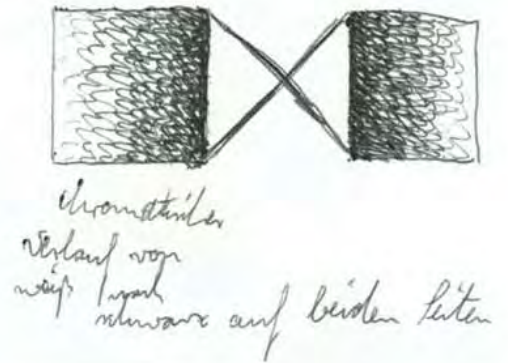 chromatischer
Verlauf von
weiß nach
schwarz auf beiden Seiten